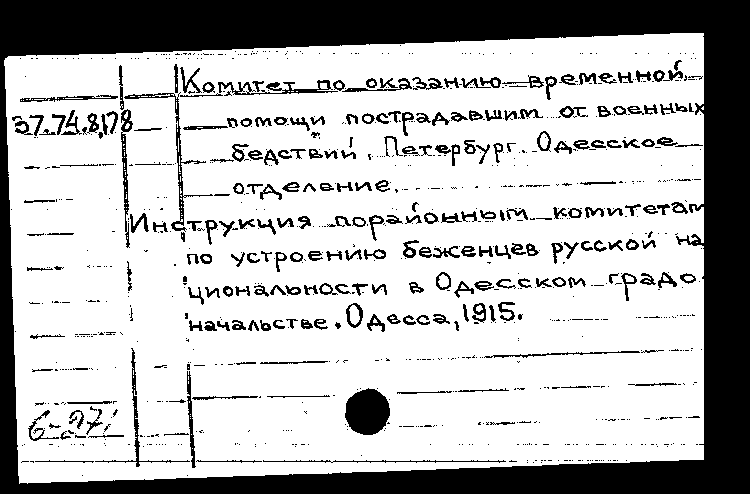 Комитет по оказанию временной
37.74.8,178
помощи пострадавшим от военных
бедствий, Петербург. Одесское
отделение.
Инструкция порайонным комитетам
по устроению беженцев русской на
циональности в Одесском градо-
начальстве. Одесса, 1915.
6-27